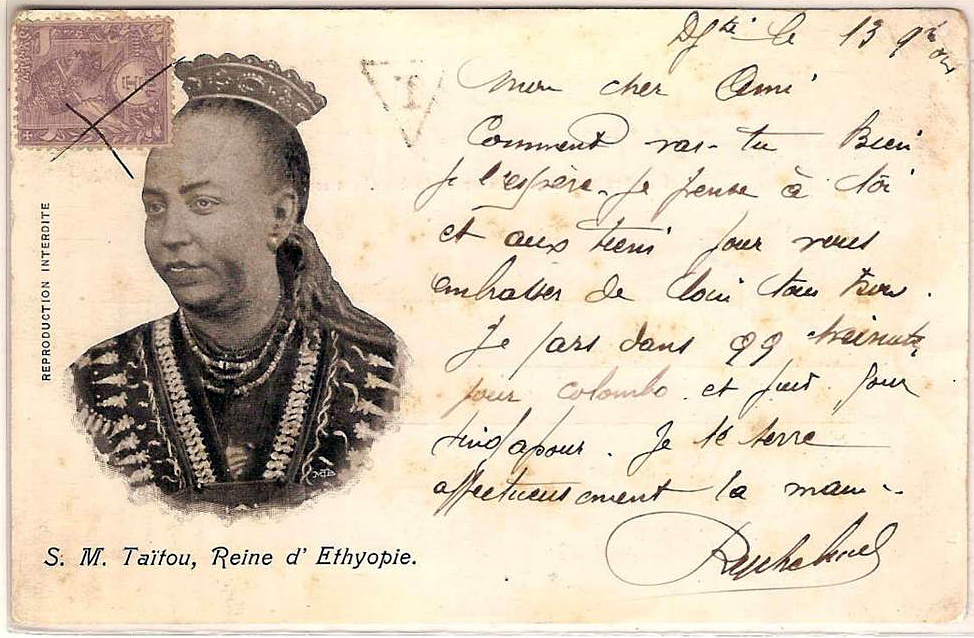 Djᵗⁱ le 13 9ᵇʳᵉ
Mon cher Ami
Comment vas-tu Bien
je l'espère. Je pense à toi
et aux tiens pour vous
embrasser de loin tous
Je pars dans qq minutes
pour colombo. et puis pour
singapour. Je te serre
affectueusement la main.
Raphael
REPRODUCTION INTERDITE
T
MTB
S. M. Taïtou, Reine d' Ethyopie.